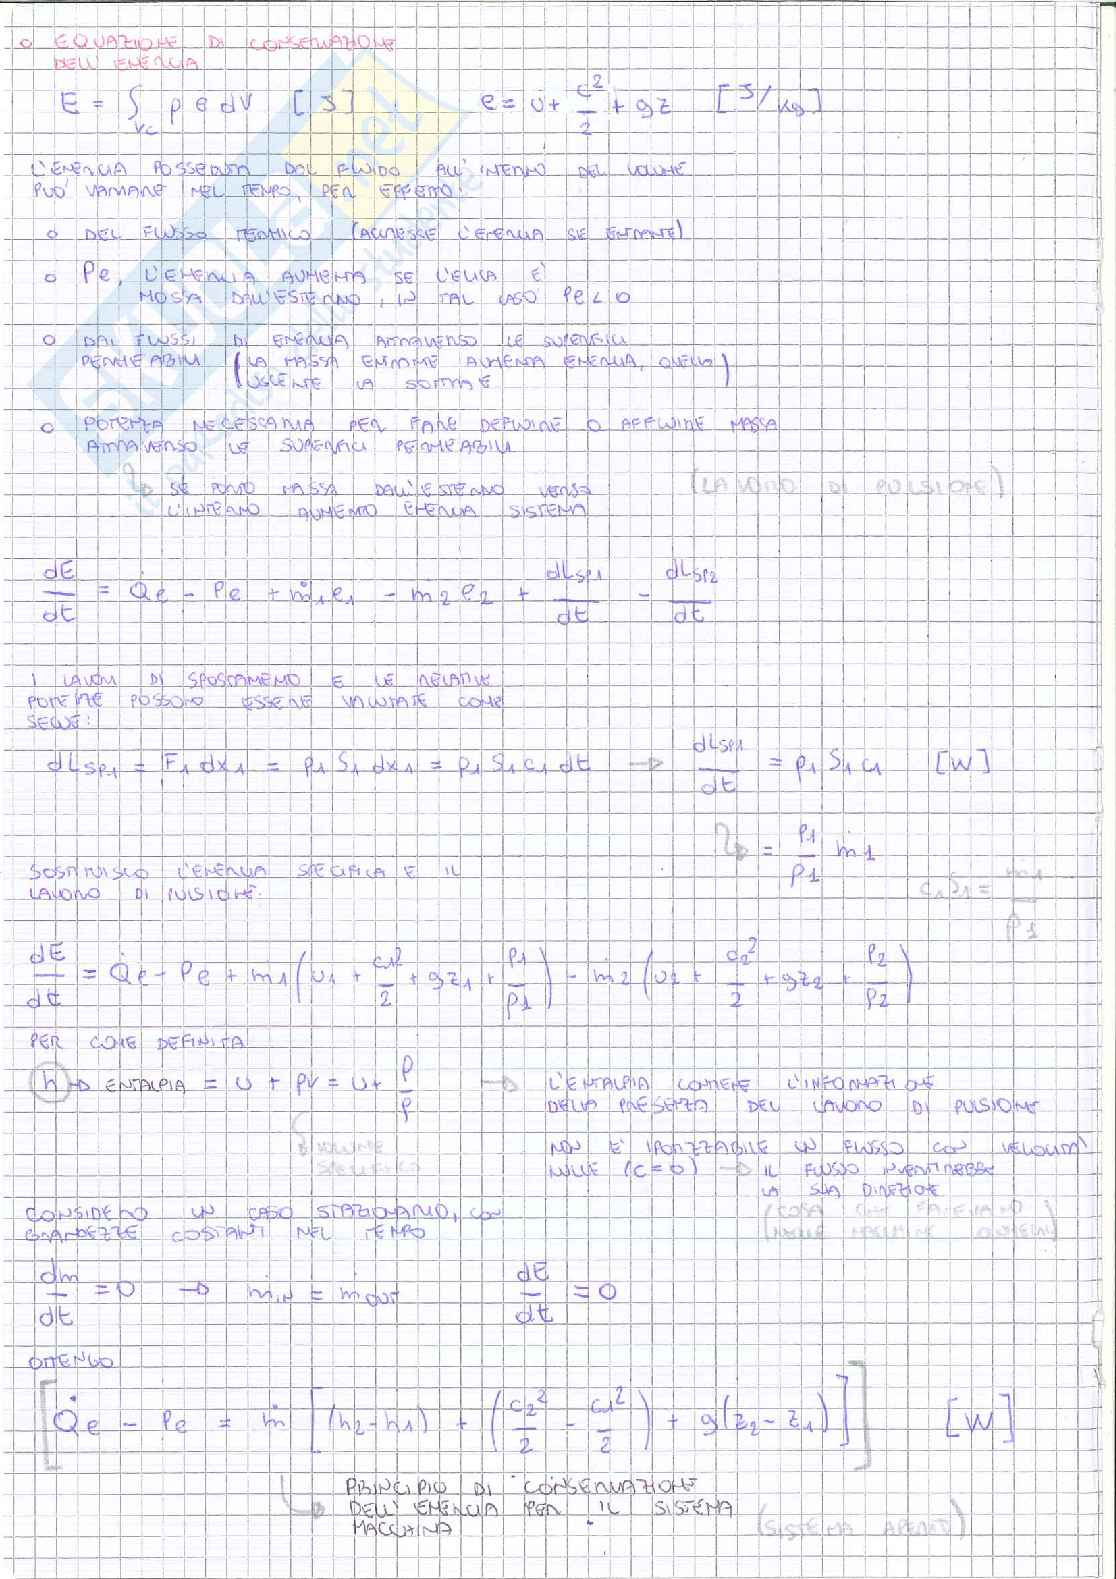 o EQUAZIONE DI CONSERVAZIONE
DELL'ENERGIA
E = ∫VC ρ e dV [J] e = u + c²/2 + gz [J/kg]
L'ENERGIA POSSEDUTA DAL FLUIDO ALL'INTERNO DEL VOLUME
PUO' VARIARE NEL TEMPO, PER EFFETTO:
o DEL FLUSSO TERMICO (ACCRESCE L'ENERGIA SE ENTRANTE)
o Pe, L'ENERGIA AUMENTA SE L'ELICA E'
MOSSA DALL'ESTERNO, IN TAL CASO Pe < 0
o DAI FLUSSI DI ENERGIA ATTRAVERSO LE SUPERFICI
PERMEABILI (LA MASSA ENTRANTE AUMENTA ENERGIA, QUELLA
USCENTE LA SOTTRAE)
o POTENZA NECESSARIA PER FARE DEFLUIRE O AFFLUIRE MASSA
ATTRAVERSO LE SUPERFICI PERMEABILI
↳ SE PORTO MASSA DALL'ESTERNO VERSO (LAVORO DI PULSIONE)
L'INTERNO AUMENTO ENERGIA SISTEMA
dE/dt = Q̇e - Pe + ṁ1e1 - ṁ2e2 + dLsp1/dt - dLsp2/dt
I LAVORI DI SPOSTAMENTO E LE RELATIVE
POTENZE POSSONO ESSERE VALUTATE COME
SEGUE:
dLsp1 = F1 dx1 = p1 S1 dx1 = p1 S1 c1 dt → dLsp1/dt = p1 S1 c1 [W]
↳ = p1/ρ1 ṁ1
SOSTITUISCO L'ENERGIA SPECIFICA E IL
LAVORO DI PULSIONE:
c1S1 = ṁ1/ρ1
dE/dt = Q̇e - Pe + ṁ1 (u1 + c1²/2 + gz1 + p1/ρ1) - ṁ2 (u2 + c2²/2 + gz2 + p2/ρ2)
PER COME DEFINITA
h → ENTALPIA = u + pv = u + p/ρ → L'ENTALPIA CONTIENE L'INFORMAZIONE
DELLA PRESENZA DEL LAVORO DI PULSIONE
VOLUME
SPECIFICO
NON E' IPOTIZZABILE UN FLUSSO CON VELOCITA'
NULLE (c=0) → IL FLUSSO INVERTIREBBE
LA SUA DIREZIONE
(COSA CHE FAREMO
NELLE MACCHINE
CONSIDERO UN CASO STAZIONARIO, CON
GRANDEZZE COSTANTI NEL TEMPO
dm/dt = 0 → ṁIN = ṁOUT dE/dt = 0
OTTENGO
[Q̇e - Pe = ṁ [(h2-h1) + (c2²/2 - c1²/2) + g(z2-z1)]] [W]
↳ PRINCIPIO DI CONSERVAZIONE
DELL'ENERGIA PER IL SISTEMA
MACCHINA (SISTEMA APERTO)